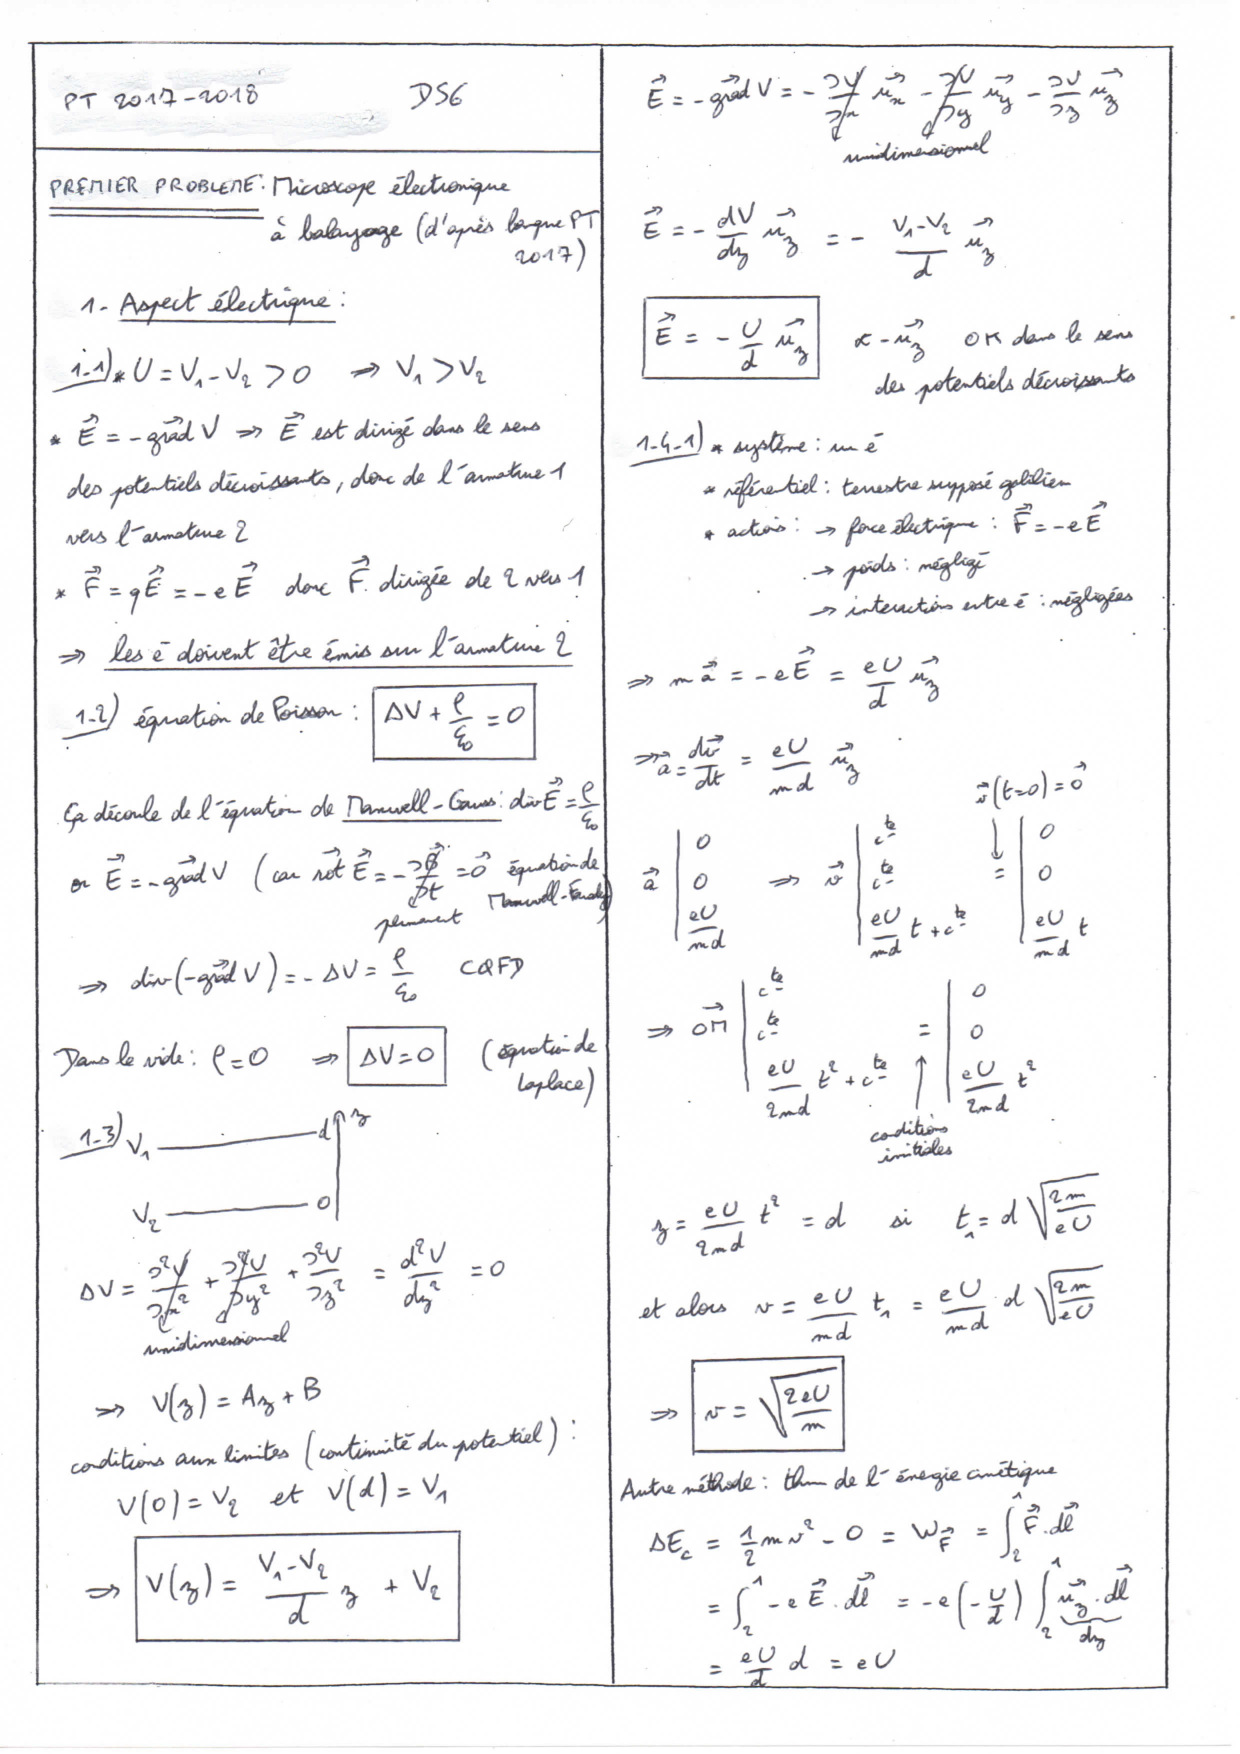 PT 2017-2018 DS6
PREMIER PROBLEME : Microscope électronique
à balayage (d'après banque PT
2017)
1- Aspect électrique :
1-1) * U = V₁-V₂ > 0 ⇒ V₁ > V₂
* E⃗ = -grad⃗ V ⇒ E⃗ est dirigé dans le sens
des potentiels décroissants, donc de l'armature 1
vers l'armature 2
* F⃗ = qE⃗ = -eE⃗ donc F⃗ dirigée de 2 vers 1
⇒ les e⁻ doivent être émis sur l'armature 2
1-2) équation de Poisson : ΔV + ρ/ε₀ = 0
Ça découle de l'équation de Maxwell-Gauss : div E⃗ = ρ/ε₀
or E⃗ = -grad⃗ V (car rot⃗ E⃗ = -∂B⃗/∂t = 0⃗ équation de
permanent Maxwell-Faraday)
⇒ div(-grad⃗ V) = -ΔV = ρ/ε₀ CQFD
Dans le vide : ρ=0 ⇒ ΔV=0 (équation de
Laplace)
1-3) V₁ d z
V₂ 0
ΔV = ∂²V/∂x² + ∂²V/∂y² + ∂²V/∂z² = d²V/dz² = 0
unidimensionnel
⇒ V(z) = Az + B
conditions aux limites (continuité du potentiel) :
V(0) = V₂ et V(d) = V₁
⇒ V(z) = (V₁-V₂)/d z + V₂
E⃗ = -grad⃗ V = -∂V/∂x u⃗x - ∂V/∂y u⃗y - ∂V/∂z u⃗z
unidimensionnel
E⃗ = -dV/dz u⃗z = - (V₁-V₂)/d u⃗z
E⃗ = -U/d u⃗z ∝ -u⃗z OK dans le sens
des potentiels décroissants
1-4-1) * système : un e⁻
* référentiel : terrestre supposé galiléen
* actions : → force électrique : F⃗ = -eE⃗
→ poids : négligé
→ interactions entre e⁻ : négligées
⇒ m a⃗ = -eE⃗ = eU/d u⃗z
⇒ a⃗ = dv⃗/dt = eU/md u⃗z
v⃗(t=0) = 0⃗
a⃗ | 0 ⇒ v⃗ | cte = | 0
| 0 | cte | 0
| eU/md | eU/md t + cte | eU/md t
⇒ OM⃗ | cte = | 0
| cte | 0
| eU/2md t² + cte | eU/2md t²
conditions
initiales
z = eU/2md t² = d si t₁ = d √(2m/eU)
et alors v = eU/md t₁ = eU/md d √(2m/eU)
⇒ v = √(2eU/m)
Autre méthode : thm de l'énergie cinétique
ΔEc = 1/2 mv² - 0 = W F⃗ = ∫₂¹ F⃗.dl⃗
= ∫₂¹ -eE⃗.dl⃗ = -e(-U/d) ∫₂¹ u⃗z.dl⃗
dz
= eU/d d = eU